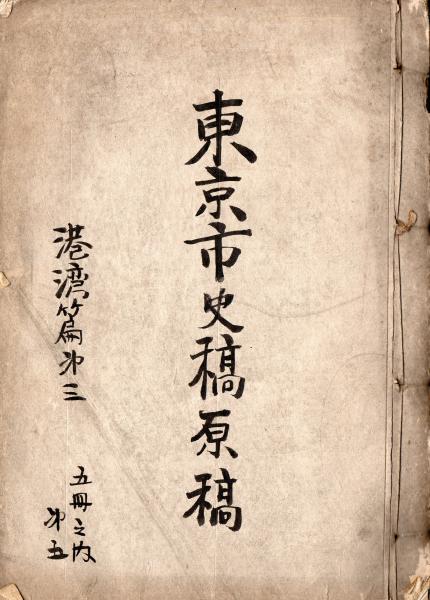 東京市史稿原稿
港湾篇第三
五冊之内
第五